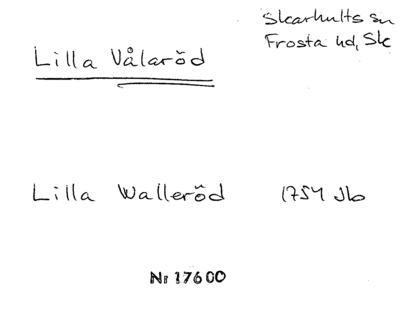 Skarhults sn
Frosta hd, Sk
Lilla Vålaröd
Lilla Walleröd 1754 Jb
Nr 17600